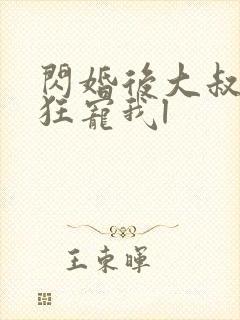 閃婚後大叔
狂寵我1
王東暉